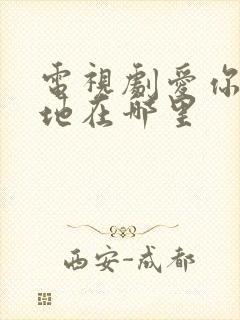 電視劇愛你
地在哪里
西安-成都